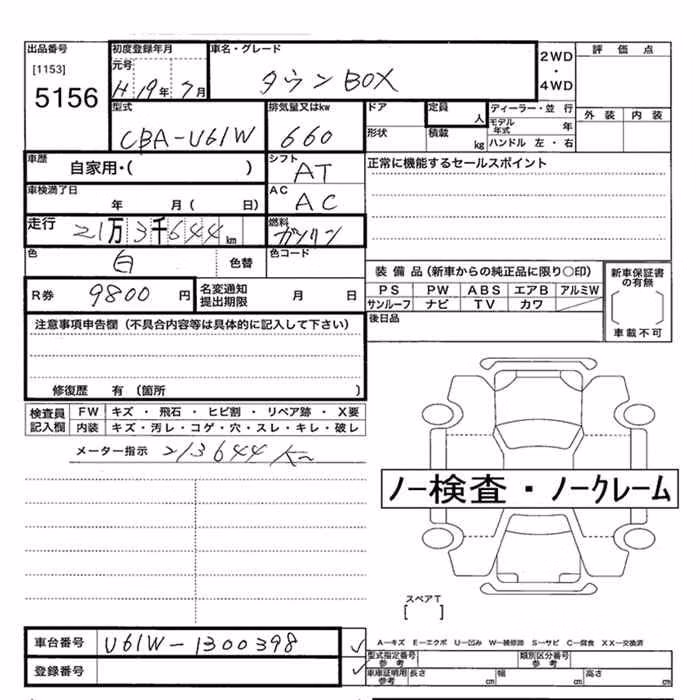 出品番号 初度登録年月 車名・グレード 2WD・4WD 評価点
[1153] 元号
5156 H19年7月 タウンBOX
型式 排気量又はkw ドア 定員 人 ディーラー・並行 外装 内装
CBA-U61W 660 形状 積載 kg モデル年式 年
ハンドル 左・右
車歴 自家用・( ) シフト AT 正常に機能するセールスポイント
車検満了日 年 月( 日) AC AC
走行 21万3千644km 燃料 ガソリン
色 白 色替 色コード
装備品(新車からの純正品に限り○印) 新車保証書の有無
R券 9800円 名変通知提出期限 月 日 PS PW ABS エアB アルミW
サンルーフ ナビ TV カワ
車載不可
注意事項申告欄(不具合内容等は具体的に記入して下さい) 後日品
修復歴 有(箇所 )
検査員記入欄 FW キズ・飛石・ヒビ割・リペア跡・X要
内装 キズ・汚レ・コゲ・穴・スレ・キレ・破レ
メーター指示 213644Km
ノー検査・ノークレーム
スペアT
[ ]
車台番号 U61W-1300398 A―キズ E―エクボ U―凹み W―補修跡 S―サビ C―腐食 XX―交換済
型式指定番号 参考 類別区分番号 参考
登録番号 車庫証明用 参考 長さ cm 幅 cm 高さ cm